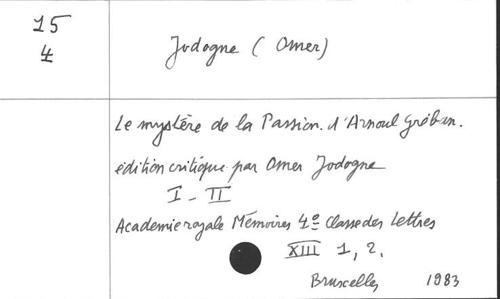 15
4
Jodogne (Omer)
Le mystère de la Passion. d'Arnoul Gréban.
édition critique par Omer Jodogne
I - II
Academie royale Mémoires 4º Classe des Lettres
XIII 1, 2.
Bruxelles 1983